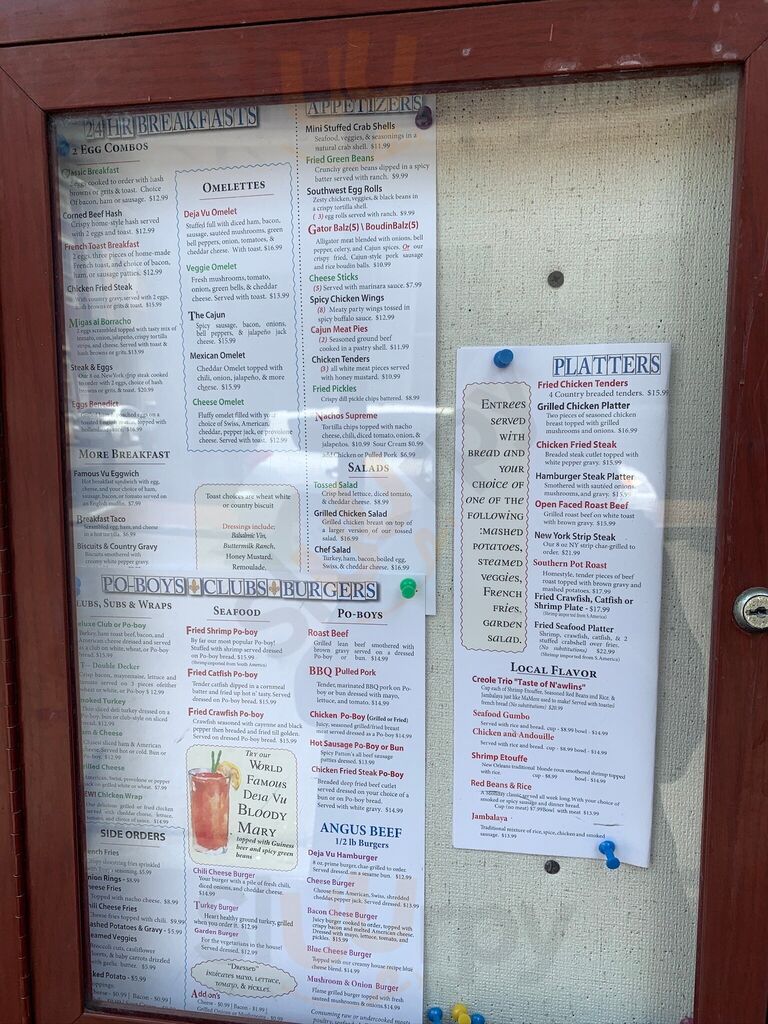 24 HR BREAKFASTS
2 EGG COMBOS
Classic Breakfast
2 eggs cooked to order with hash
browns or grits & toast. Choice
Of bacon, ham or sausage. $12.99
Corned Beef Hash
Crispy home-style hash served
with 2 eggs and toast. $12.99
French Toast Breakfast
2 eggs, three pieces of home-made
French toast, and choice of bacon,
ham, or sausage patties. $12.99
Chicken Fried Steak
With country gravy, served with 2 eggs,
hash browns or grits & toast. $15.99
Migas al Borracho
2 eggs scrambled topped with tasty mix of
tomato, onion, jalapeño, crispy tortilla
strips, and cheese. Served with toast &
hash browns or grits. $13.99
Steak & Eggs
Our 8 oz. New York strip steak cooked
to order with 2 eggs, choice of hash
browns or grits, & toast. $20.99
Eggs Benedict
MORE BREAKFAST
Famous Vu Eggwich
Hot breakfast sandwich with egg,
cheese, and your choice of ham,
sausage, bacon, or tomato served on
an English muffin. $6.99
Breakfast Taco
Scrambled egg, ham, and cheese
in a hot tortilla. $6.99
Biscuits & Country Gravy
Biscuits smothered with
creamy white pepper gravy.
OMELETTES
Deja Vu Omelet
Stuffed full with diced ham, bacon,
sausage, sauteed mushrooms, green
bell peppers, onion, tomatoes, &
cheddar cheese. With toast. $16.99
Veggie Omelet
Fresh mushrooms, tomato,
onion, green bells, & cheddar
cheese. Served with toast. $13.99
The Cajun
Spicy sausage, bacon, onions,
bell peppers, & jalapeño jack
cheese. $15.99
Mexican Omelet
Cheddar Omelet topped with
chili, onion, jalapeño, & more
cheese. $15.99
Cheese Omelet
Fluffy omelet filled with your
choice of Swiss, American,
cheddar, pepper jack, or provolone
cheese. Served with toast. $12.99
Toast choices are wheat white
or country biscuit
Dressings include:
Balsalmic Vin,
Buttermilk Ranch,
Honey Mustard,
Remoulade,
APPETIZERS
Mini Stuffed Crab Shells
Seafood, veggies, & seasonings in a
natural crab shell. $11.99
Fried Green Beans
Crunchy green beans dipped in a spicy
batter served with ranch. $9.99
Southwest Egg Rolls
Zesty chicken, veggies, & black beans in
a crispy tortilla shell.
( 3) egg rolls served with ranch. $9.99
Gator Balz(5) \ BoudinBalz(5)
Alligator meat blended with onions, bell
pepper, celery, and Cajun spices. Or our
crispy fried, Cajun-style pork sausage
and rice boudin balls. $10.99
Cheese Sticks
(5) Served with marinara sauce. $7.99
Spicy Chicken Wings
(8) Meaty party wings tossed in
spicy buffalo sauce. $12.99
Cajun Meat Pies
(2) Seasoned ground beef
cooked in a pastry shell. $11.99
Chicken Tenders
(3) all white meat pieces served
with honey mustard. $10.99
Fried Pickles
Crispy dill pickle chips battered. $8.99
Nachos Supreme
Tortilla chips topped with nacho
cheese, chili, diced tomato, onion, &
jalapeños. $10.99 Sour Cream $0.99
add Chicken or Pulled Pork $6.99
SALADS
Tossed Salad
Crisp head lettuce, diced tomato,
& cheddar cheese. $8.99
Grilled Chicken Salad
Grilled chicken breast on top of
a larger version of our tossed
salad. $16.99
Chef Salad
Turkey, ham, bacon, boiled egg,
Swiss, & cheddar cheese. $16.99
PO-BOYS CLUBS BURGERS
LUBS, SUBS & WRAPS
eluxe Club or Po-boy
Turkey, ham roast beef, bacon, and
American cheese dressed and served
as a club on wheat, white, or Po-boy
bread. $15.99
T— Double Decker
moked Turkey
m & Cheese
rilled Cheese
EW! Chicken Wrap
SIDE ORDERS
ench Fries
nion Rings - $8.99
heese Fries
Topped with nacho cheese. $8.99
hili Cheese Fries
Cheese fries topped with chili. $9.99
ashed Potatoes & Gravy - $5.99
eamed Veggies
Broccoli cuts, cauliflower
florets, & baby carrots drizzled
with garlic butter. $5.99
ked Potato - $5.99
oppings:
SEAFOOD
Fried Shrimp Po-boy
By far our most popular Po-boy!
Stuffed with shrimp served dressed
on Po-boy bread. $15.99
(Shrimp imported from South America)
Fried Catfish Po-boy
Tender catfish dipped in a cornmeal
batter and fried up hot n' tasty. Served
dressed on Po-boy bread. $15.99
Fried Crawfish Po-boy
Crawfish seasoned with cayenne and black
pepper then breaded and fried till golden.
Served on dressed Po-boy bread. $15.99
TRY OUR
WORLD
FAMOUS
DEJA VU
BLOODY
MARY
topped with Guiness
beer and spicy green
beans
Chili Cheese Burger
Your burger with a pile of fresh chili,
diced onions, and cheddar cheese.
$14.99
Turkey Burger
Heart healthy ground turkey, grilled
when you order it. $12.99
Garden Burger
For the vegetarians in the house!
Served dressed. $12.99
"Dressed"
INDICATES MAYO, LETTUCE,
TOMATO, & PICKLES.
Add on's
Cheese - $0.99 | Bacon - $1.99 |
PO-BOYS
Roast Beef
Grilled lean beef smothered with
brown gravy served on a dressed
Po-boy or bun. $14.99
BBQ Pulled Pork
Tender, marinated BBQ pork on Po-
boy or bun dressed with mayo,
lettuce, and tomato. $14.99
Chicken Po-Boy (Grilled or Fried)
Juicy, seasoned grilled/fried breast
meat served dressed on a Po-boy $14.99
Hot Sausage Po-Boy or Bun
Spicy Patton's all beef sausage
patties dressed. $13.99
Chicken Fried Steak Po-Boy
Breaded deep fried beef cutlet
served dressed on your choice of
a bun or on Po-boy bread.
Served with white gravy. $14.99
ANGUS BEEF
1/2 lb Burgers
Deja Vu Hamburger
8 oz. prime burger, char-grilled to order.
Served dressed, on a sesame bun. $12.99
Cheese Burger
Choose from American, Swiss, shredded
cheddar, pepper jack. Served dressed. $13.99
Bacon Cheese Burger
Juicy burger cooked to order, topped with
crispy bacon and melted American cheese.
Dressed with mayo, lettuce, tomato, and
pickles. $15.99
Blue Cheese Burger
Topped with our creamy house recipe blue
cheese blend. $14.99
Mushroom & Onion Burger
Flame grilled burger topped with fresh
sauteed mushrooms & onions. $14.99
Consuming raw or undercooked meats
PLATTERS
ENTREES
SERVED
WITH
BREAD AND
YOUR
CHOICE OF
ONE OF THE
FOLLOWING
:MASHED
POTATOES,
STEAMED
VEGGIES,
FRENCH
FRIES,
GARDEN
SALAD.
Fried Chicken Tenders
4 Country breaded tenders. $15.99
Grilled Chicken Platter
Two pieces of seasoned chicken
breast topped with grilled
mushrooms and onions. $16.99
Chicken Fried Steak
Breaded steak cutlet topped with
white pepper gravy. $15.99
Hamburger Steak Platter
Smothered with sauteed onions,
mushrooms, and gravy. $15.99
Open Faced Roast Beef
Grilled roast beef on white toast
with brown gravy. $15.99
New York Strip Steak
Our 8 oz NY strip char-grilled to
order. $21.99
Southern Pot Roast
Homestyle, tender pieces of beef
roast topped with brown gravy and
mashed potatoes. $17.99
Fried Crawfish, Catfish or
Shrimp Plate - $17.99
(Shrimp imported from S. America)
Fried Seafood Platter
Shrimp, crawfish, catfish, & 2
stuffed crabs
(No Substitutions) $22.99
(Shrimp imported from S. America)
LOCAL FLAVOR
Creole Trio "Taste of N'awlins"
Cup each of Shrimp Etouffee, Seasoned Red Beans and Rice, &
Jambalaya just like MaMere used to make! Served with toasted
french bread (No substitutions) $20.99
Seafood Gumbo
Served with rice and bread. cup - $8.99 bowl - $14.99
Chicken and Andouille
Served with rice and bread. cup - $8.99 bowl - $14.99
Shrimp Etouffe
New Orleans traditional blonde roux smothered shrimp topped
with rice. cup - $8.99 bowl - $14.99
Red Beans & Rice
A Monday classic served all week long. With your choice of
smoked or spicy sausage and dinner bread.
Cup (no meat) $7.99 Bowl with meat $13.99
Jambalaya
Traditional mixture of rice, spice, chicken and smoked
sausage. $13.99